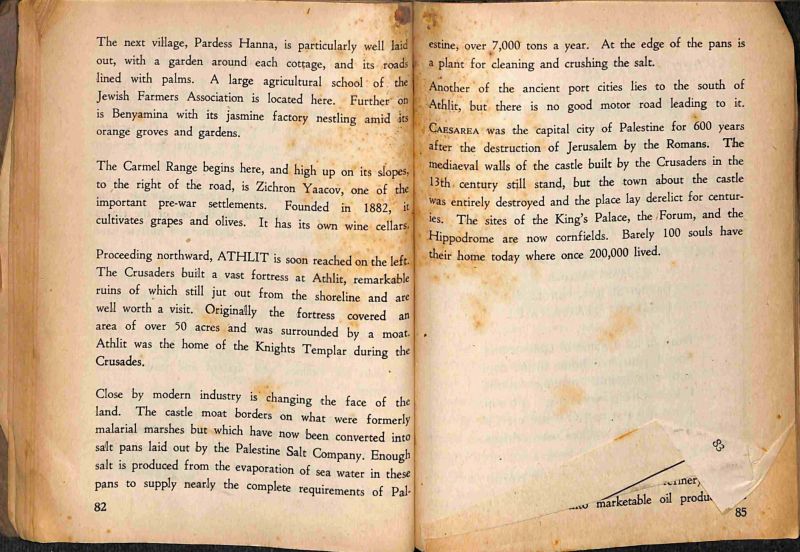 The next village, Pardess Hanna, is particularly well laid
out, with a garden around each cottage, and its roads
lined with palms. A large agricultural school of the
Jewish Farmers Association is located here. Further on
is Benyamina with its jasmine factory nestling amid its
orange groves and gardens.
The Carmel Range begins here, and high up on its slopes,
to the right of the road, is Zichron Yaacov, one of the
important pre-war settlements. Founded in 1882, it
cultivates grapes and olives. It has its own wine cellars.
Proceeding northward, ATHLIT is soon reached on the left.
The Crusaders built a vast fortress at Athlit, remarkable
ruins of which still jut out from the shoreline and are
well worth a visit. Originally the fortress covered an
area of over 50 acres and was surrounded by a moat.
Athlit was the home of the Knights Templar during the
Crusades.
Close by modern industry is changing the face of the
land. The castle moat borders on what were formerly
malarial marshes but which have now been converted into
salt pans laid out by the Palestine Salt Company. Enough
salt is produced from the evaporation of sea water in these
pans to supply nearly the complete requirements of Pal-
82
estine, over 7,000 tons a year. At the edge of the pans is
a plant for cleaning and crushing the salt.
Another of the ancient port cities lies to the south of
Athlit, but there is no good motor road leading to it.
CAESAREA was the capital city of Palestine for 600 years
after the destruction of Jerusalem by the Romans. The
mediaeval walls of the castle built by the Crusaders in the
13th century still stand, but the town about the castle
was entirely destroyed and the place lay derelict for centur-
ies. The sites of the King's Palace, the Forum, and the
Hippodrome are now cornfields. Barely 100 souls have
their home today where once 200,000 lived.
83
marketable oil
85